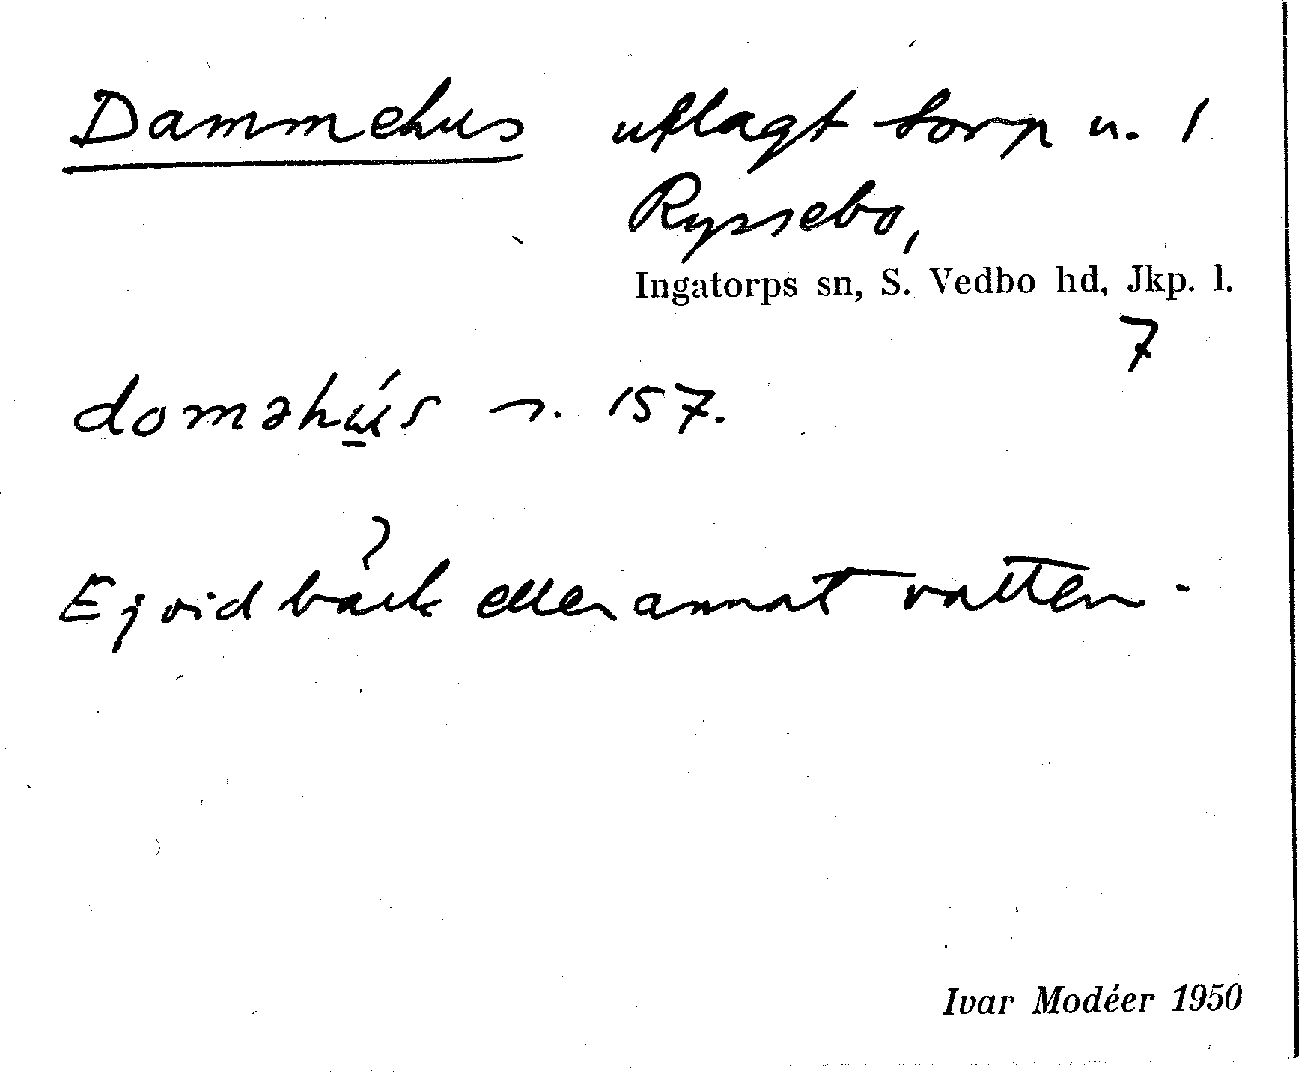 Dammehus utlagt torp u. 1
Ryssebo,
Ingatorps sn, S. Vedbo hd, Jkp. l.
7
domǝhú̲s s. 157.
Ej vid bäck eller annat vatten.
Ivar Modéer 1950